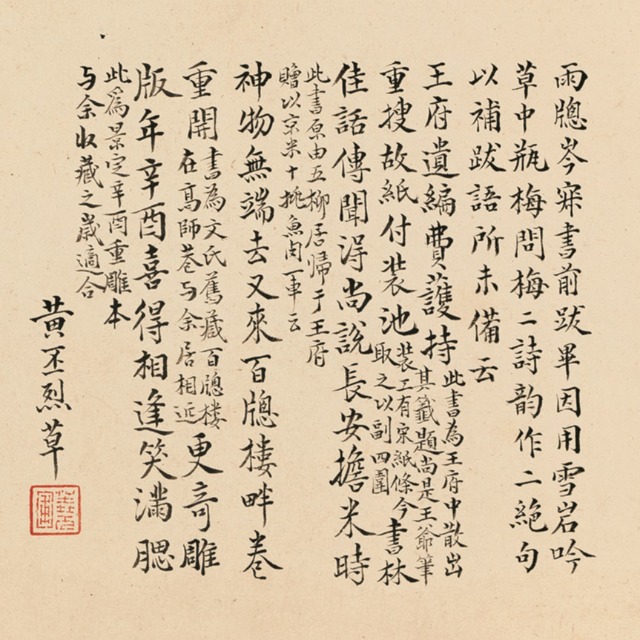 雨牕岑寂書前跋畢因用雪岩吟
草中瓶梅問梅二詩韵作二絕句
以補跋語所未備云
王府遺編費護持
此書為王府中散出
其籤題尚是王爺筆
重搜故紙付裝池
裝工有宋紙條今
取之以副四圍
書林
佳話傳聞淂尚說長安擔米時
此書原由五柳居歸于王府
贈以京米十挑魚肉一車云
神物無端去又來百牕樓畔卷
重開
書為文氏舊藏百牕樓
在髙師巷与余居相近
更竒雕
版年辛酉喜得相逢笑滿腮
此為景定辛酉重雕本
与余收藏之嵗適合
黃丕烈草